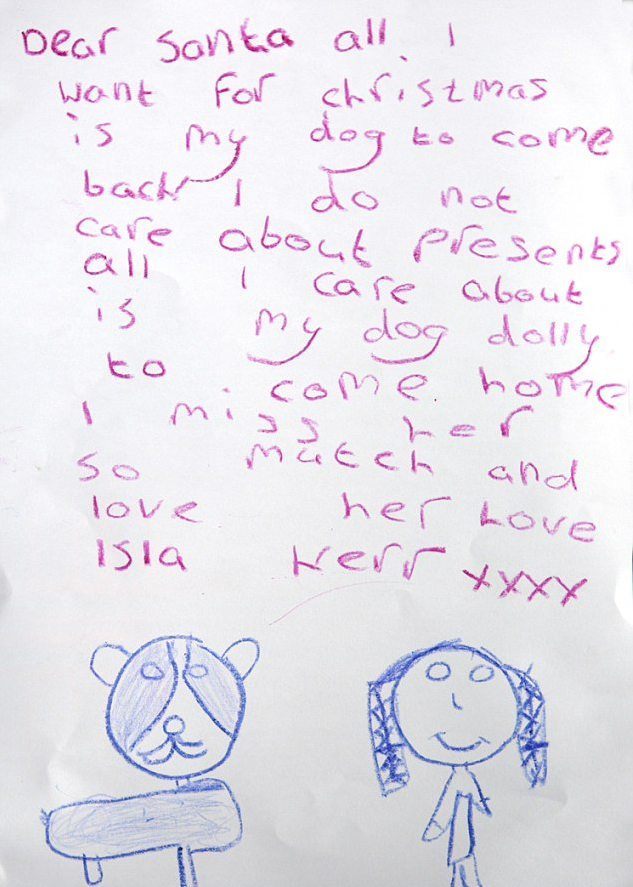 Dear Santa all I
want for christmas
is my dog to come
back I do not
care about presents
all I care about
is my dog dolly
to come home
I miss her
so mutch and
love her Love
ISla Kerr xxxx